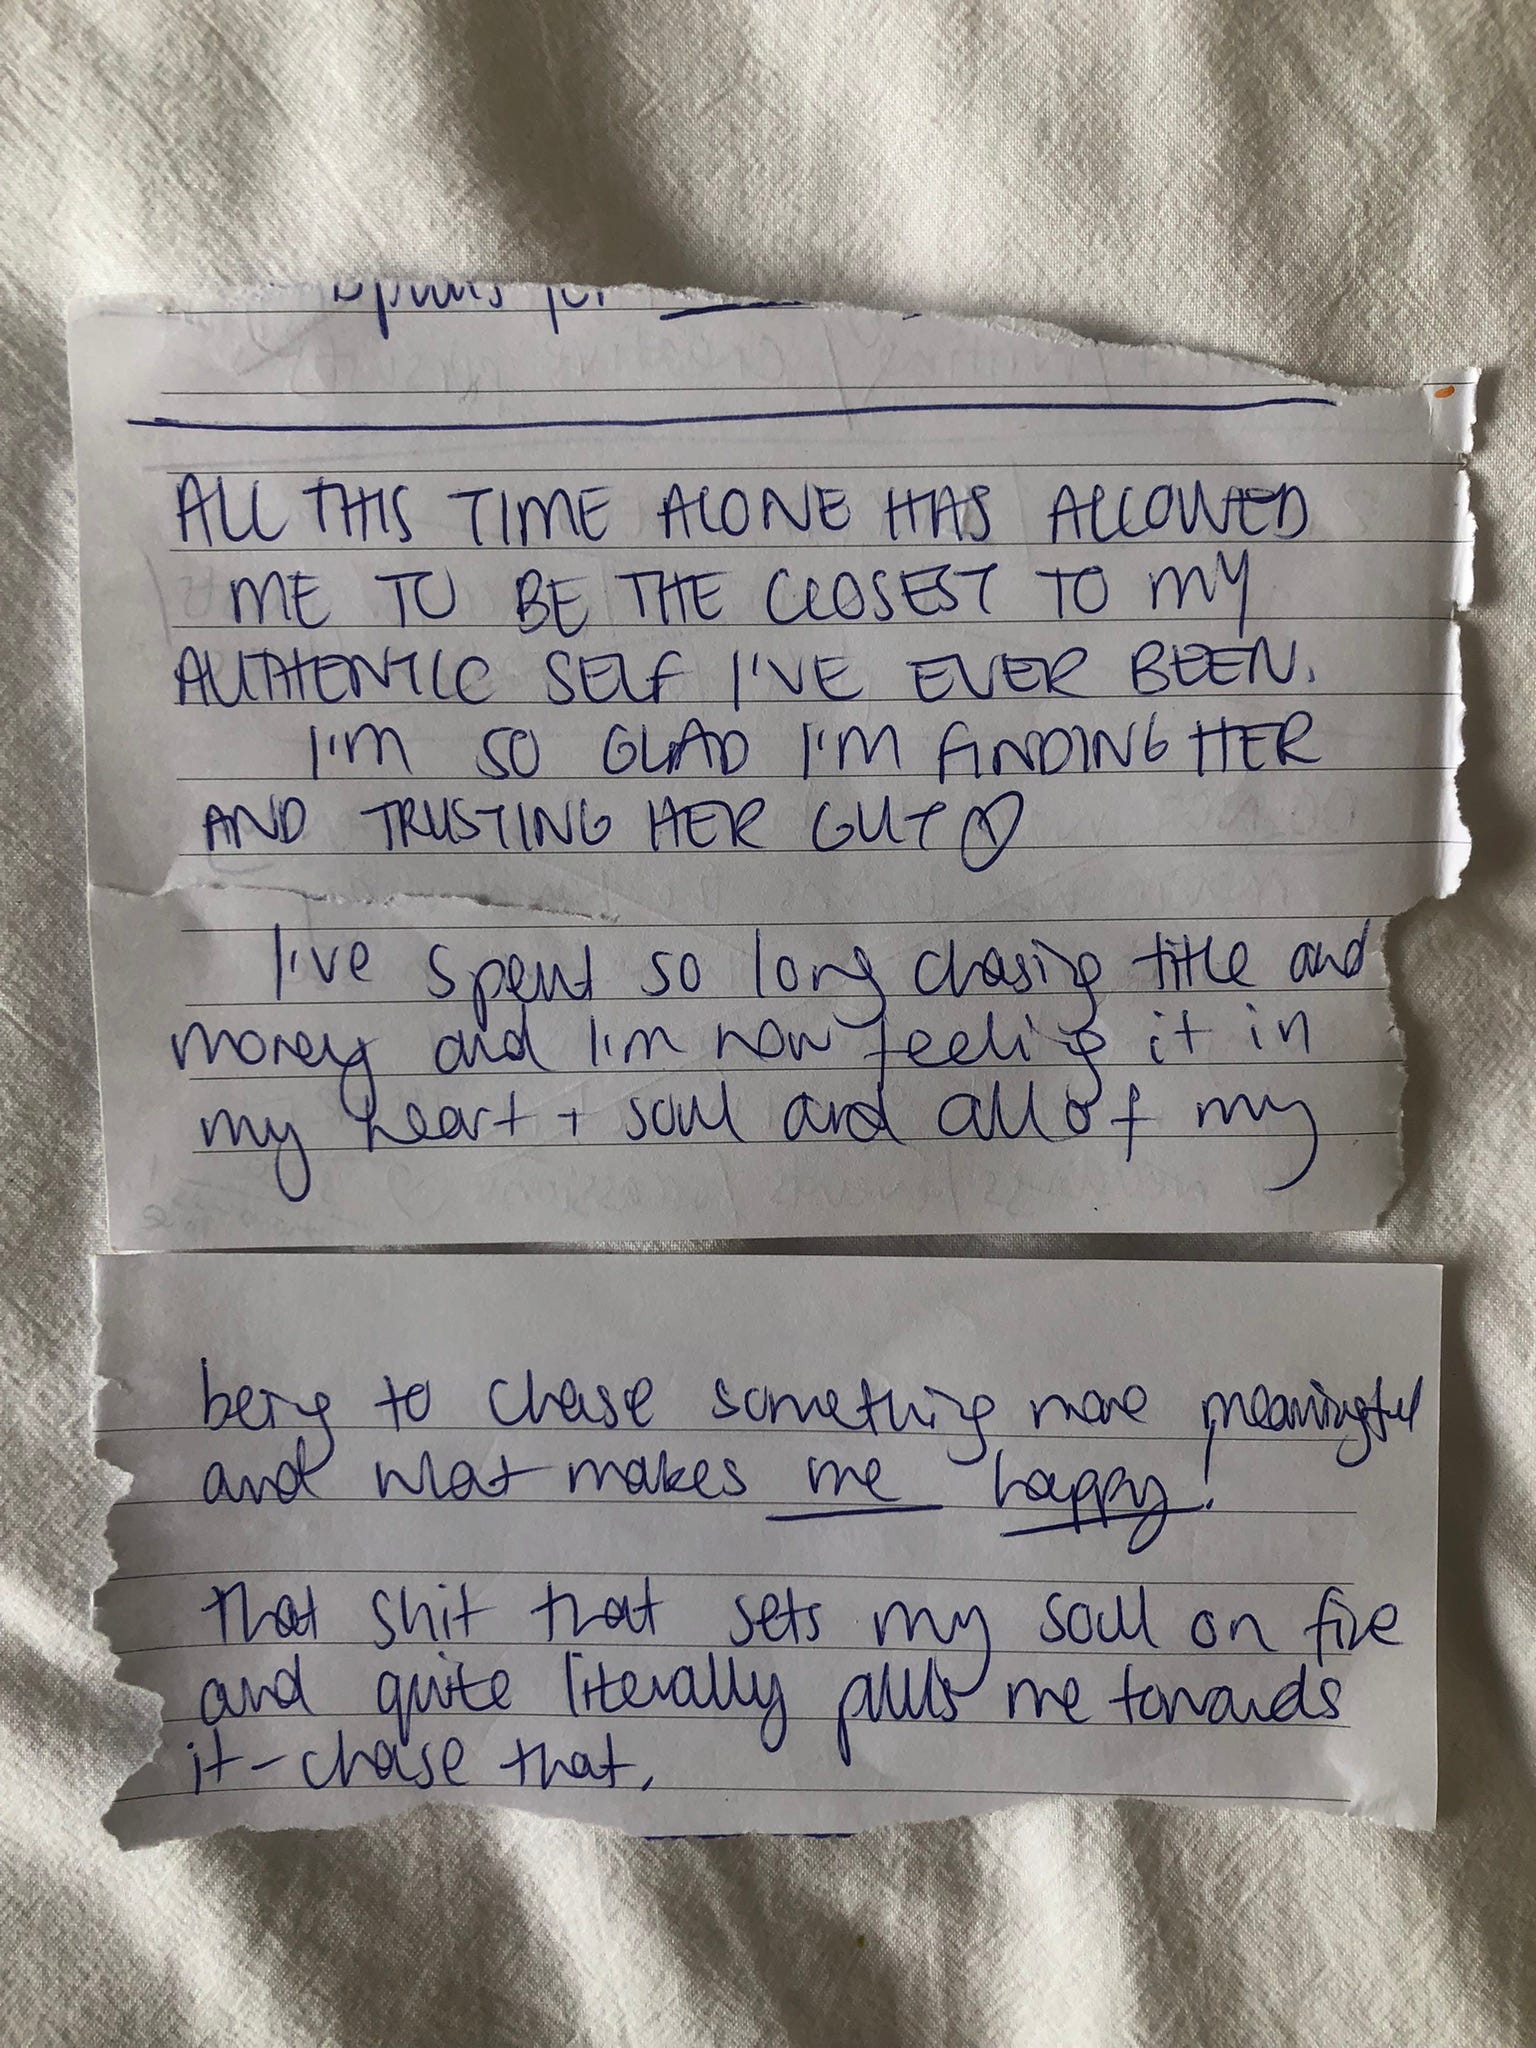 for
ALL THIS TIME ALONE HAS ALLOWED
ME TO BE THE CLOSEST TO MY
AUTHENTIC SELF I'VE EVER BEEN.
I'M SO GLAD I'M FINDING HER
AND TRUSTING HER GUT ♡
I've spent so long chasing title and
money and I'm now feeling it in
my heart + soul and all of my
being to chase something more meaningful
and what makes me happy!
that shit that sets my soul on fire
and quite literally pulls me towards
it - chase that.